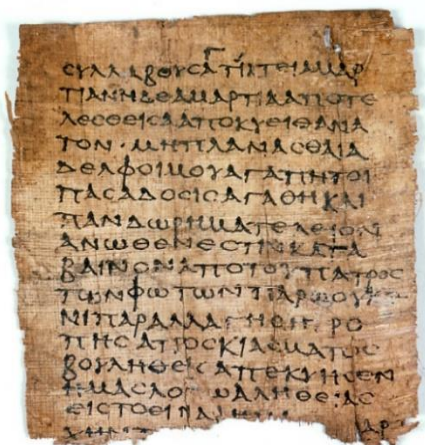 Γ
ϹΥΛΛΑΒΟΥϹΑΤΙΚΤΕΙΑΜΑΡ
ΤΙΑΝΗΔΕΑΜΑΡΤΙΑΑΠΟΤΕ
ΛΕϹΘΕΙϹΑΑΠΟΚΥΕΙΘΑΝΑ
ΤΟΝ·ΜΗΠΛΑΝΑϹΘΑΙΑ
ΔΕΛΦΟΙΜΟΥΑΓΑΠΗΤΟΙ
ΠΑϹΑΔΟϹΙϹΑΓΑΘΗΚΑΙ
ΠΑΝΔΩΡΗΜΑΤΕΛΕΙΟΝ
ΑΝΩΘΕΝΕϹΤΙΝΚΑΤΑ
ΒΑΙΝΟΝΑΠΟΤΟΥΠΑΤΡΟϹ
ΤΩΝΦΩΤΩΝΠΑΡΩΟΥΚΕ
ΝΙΠΑΡΑΛΛΑΓΗϹΗΤΡΟ
ΠΗϹΑΠΟϹΚΙΑϹΜΑΤΟϹ
ΒΟΥΛΗΘΕΙϹΑΠΕΚΥΗϹΕΝ
ΗΜΑϹΛΟΓΩΑΛΗΘΕΙΑϹ
ΕΙϹΤΟΕΙΝΑΙ